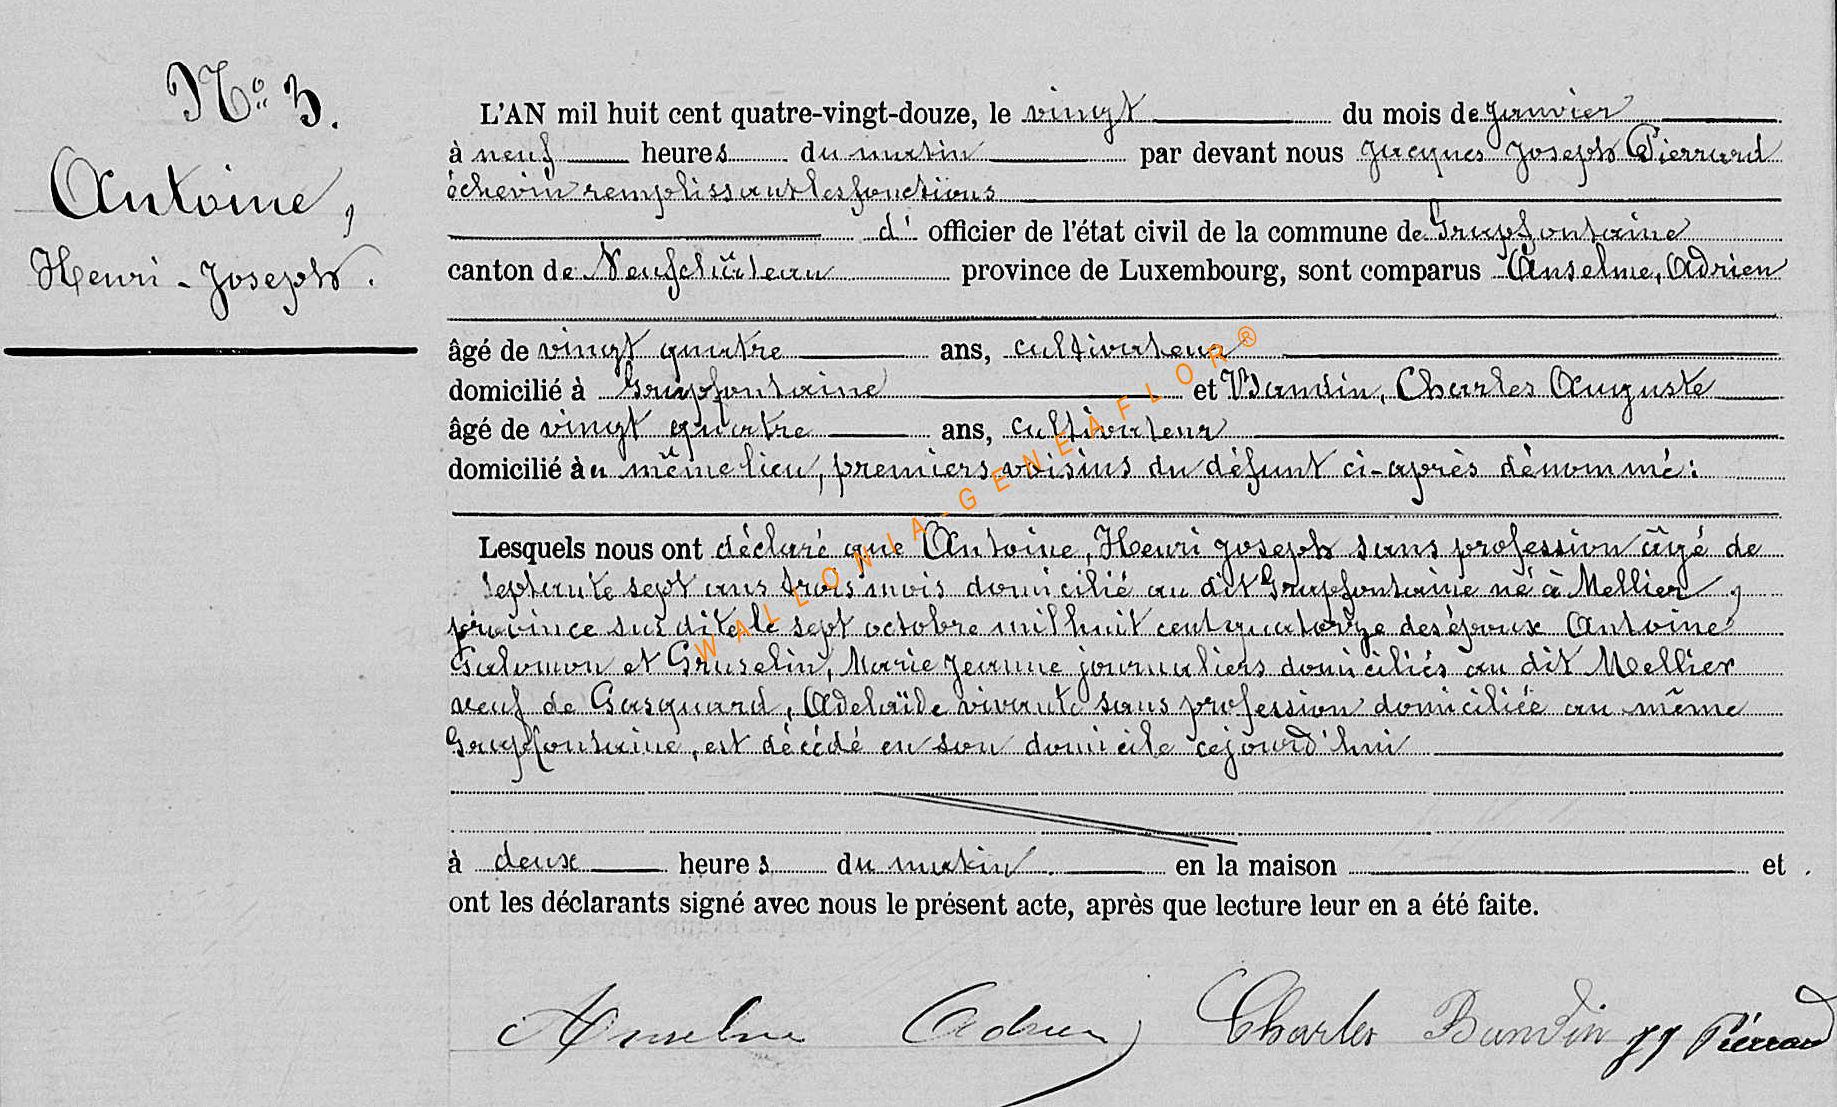 N° 3.
Antoine,
Henri-Joseph.
L'AN mil huit cent quatre-vingt-douze, le vingt du mois de Janvier
à neuf heures du matin par devant nous Jacques Joseph Pierrard
échevin remplissant les fonctions
d' officier de l'état civil de la commune de Grapfontaine
canton de Neufchâteau province de Luxembourg, sont comparus Anselme, Adrien
âgé de vingt quatre ans, cultivateur
domicilié à Grapfontaine et Bandin, Charles Auguste
âgé de vingt quatre ans, cultivateur
domicilié au même lieu, premiers voisins du défunt ci-après dénommé:
Lesquels nous ont déclaré que Antoine, Henri Joseph sans profession âgé de
septante sept ans trois mois domicilié au dit Grapfontaine né à Mellier,
province sus dite le sept octobre mil huit cent quatorze des époux Antoine
Salomon et Gruselin, Marie Jeanne journaliers domiciliés au dit Mellier
veuf de Gasquard, Adelaïde vivante sans profession domiciliée au même
Grapfontaine, est décédé en son domicile cejourd'hui
à deux heures du matin en la maison et
ont les déclarants signé avec nous le présent acte, après que lecture leur en a été faite.
Anselme Adrien Charles Bandin JJ Pierrard
WALLONIA-GENEAFLOR®